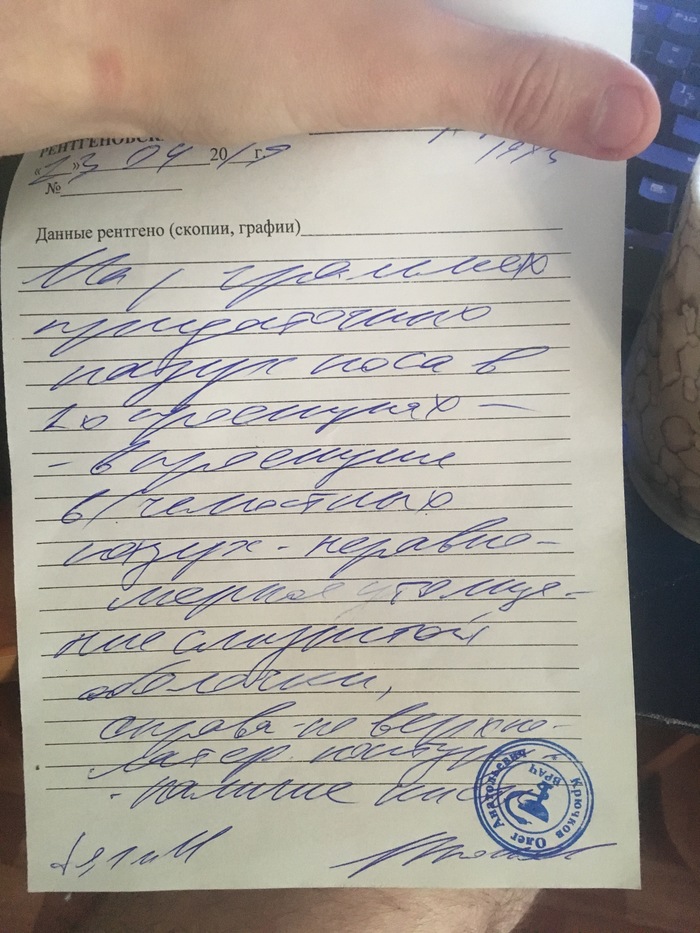 РЕНТГЕНОВСК
«23» 04 2019 г.
№
Данные рентгено (скопии, графии)
На р граммах
придаточных
пазух носа в
2х проекциях -
- в проекции
в/челюстных
пазух - неравно-
мерное утолще-
ние слизистой
оболочки,
справа - по верхне-
латер контуру
- наличие кист
Крючков Олег Анатольевич
ВРАЧ